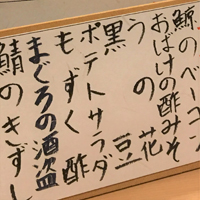 鯨のベーコン
おばけの酢みそ
うの花
黒豆
ポテトサラダ
もずく酢
まぐろの酒盗
鯖のきずし